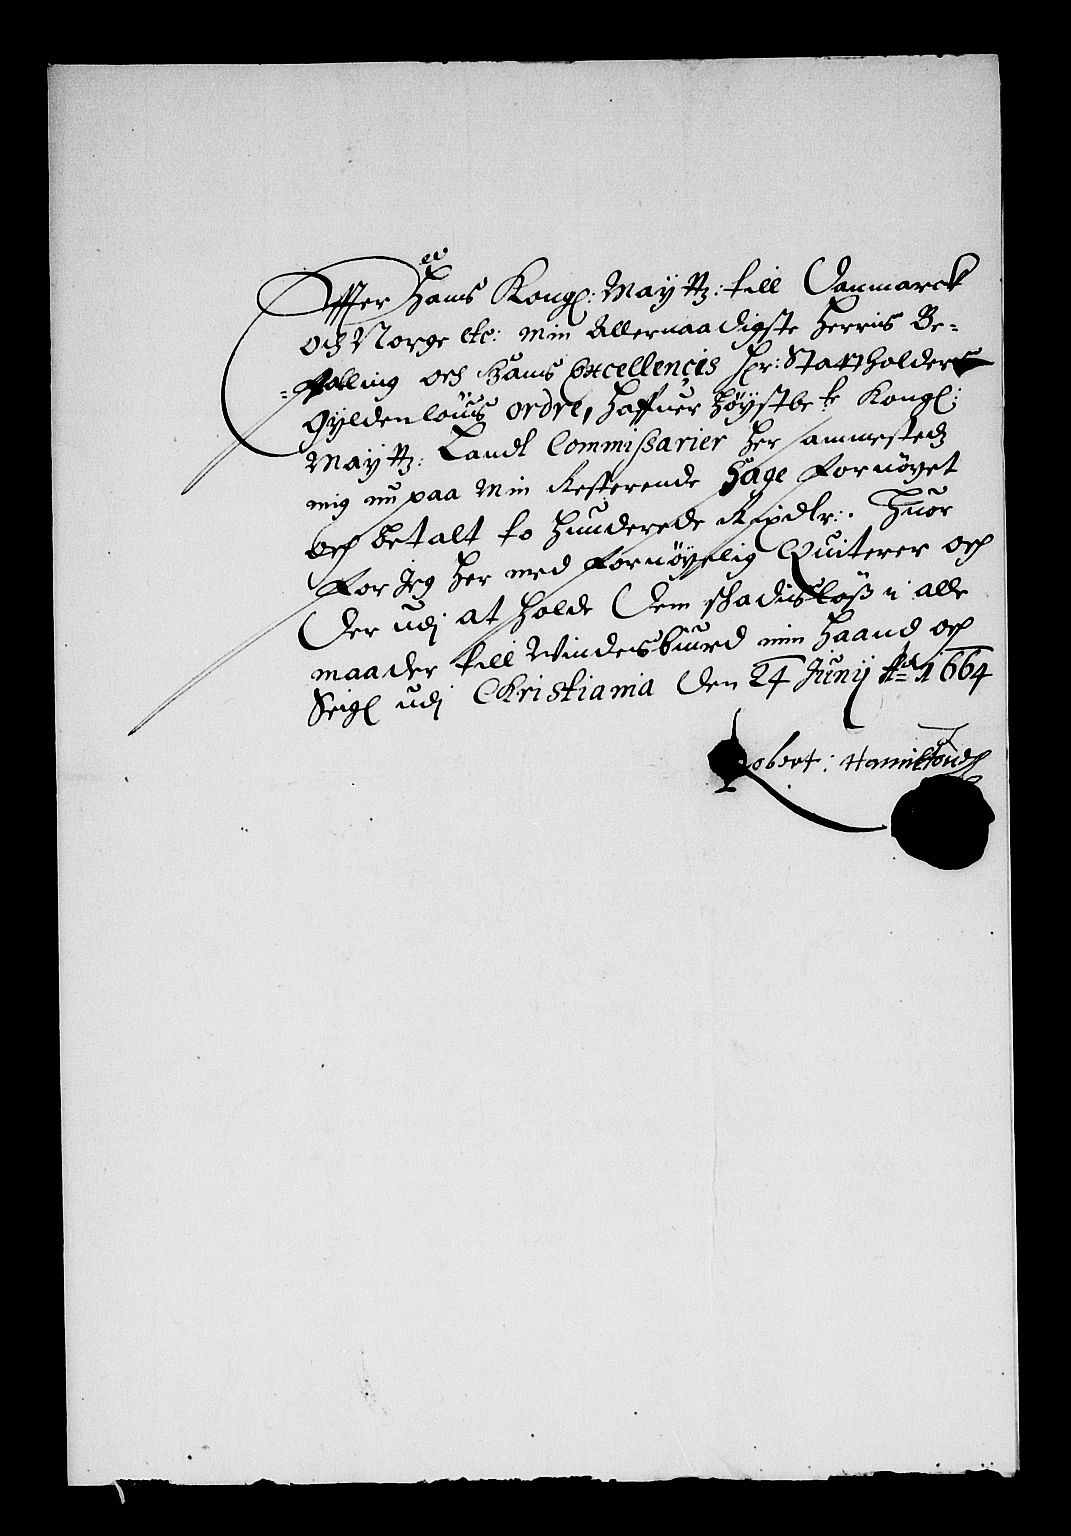 Effter Hans Kongl: Maytz: till Danmarck
och Norge etc: min Allernaadigste Herris Be-
-falling och Hans Excellencis Hr: Statholder
Gyldenlöüis ordre, haffuer høystbe te Kongl:
Maytz: Landt Commissarier her sammestedz
mig nu paa Min Resterende Gage fornöyet
och betalt to Hunderede Rixdlr:. Huor
for Jeg her med fornöyelig Quiterer och
Der udj at holde Dem skadislöss i alle
maader till Windeisbiurd min Haand och
Seigl udj Christiania Den 24 Junij Ao 1664
Robert: Hamilton